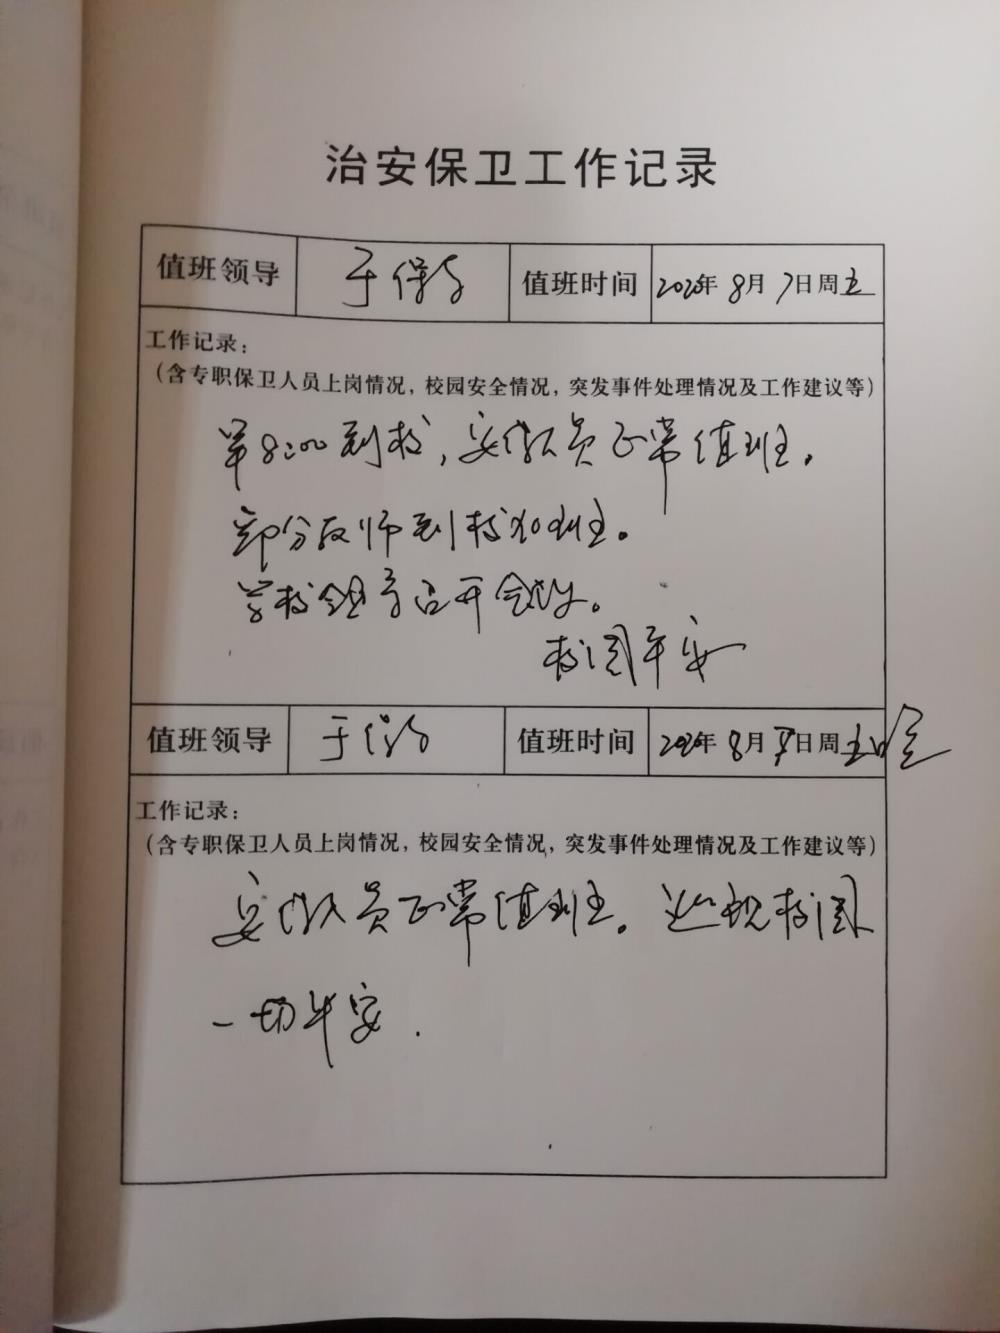 治安保卫工作记录
值班领导 于保 值班时间 2020年 8月 7日周五
工作记录：
（含专职保卫人员上岗情况，校园安全情况，突发事件处理情况及工作建议等）
早8:00到校，安保人员正常值班。
部分教师到校加班。
学校领导召开会议。
校园平安
值班领导 于保 值班时间 2020年 8月 7日周五晚
工作记录：
（含专职保卫人员上岗情况，校园安全情况，突发事件处理情况及工作建议等）
安保人员正常值班。巡视校园
一切平安.